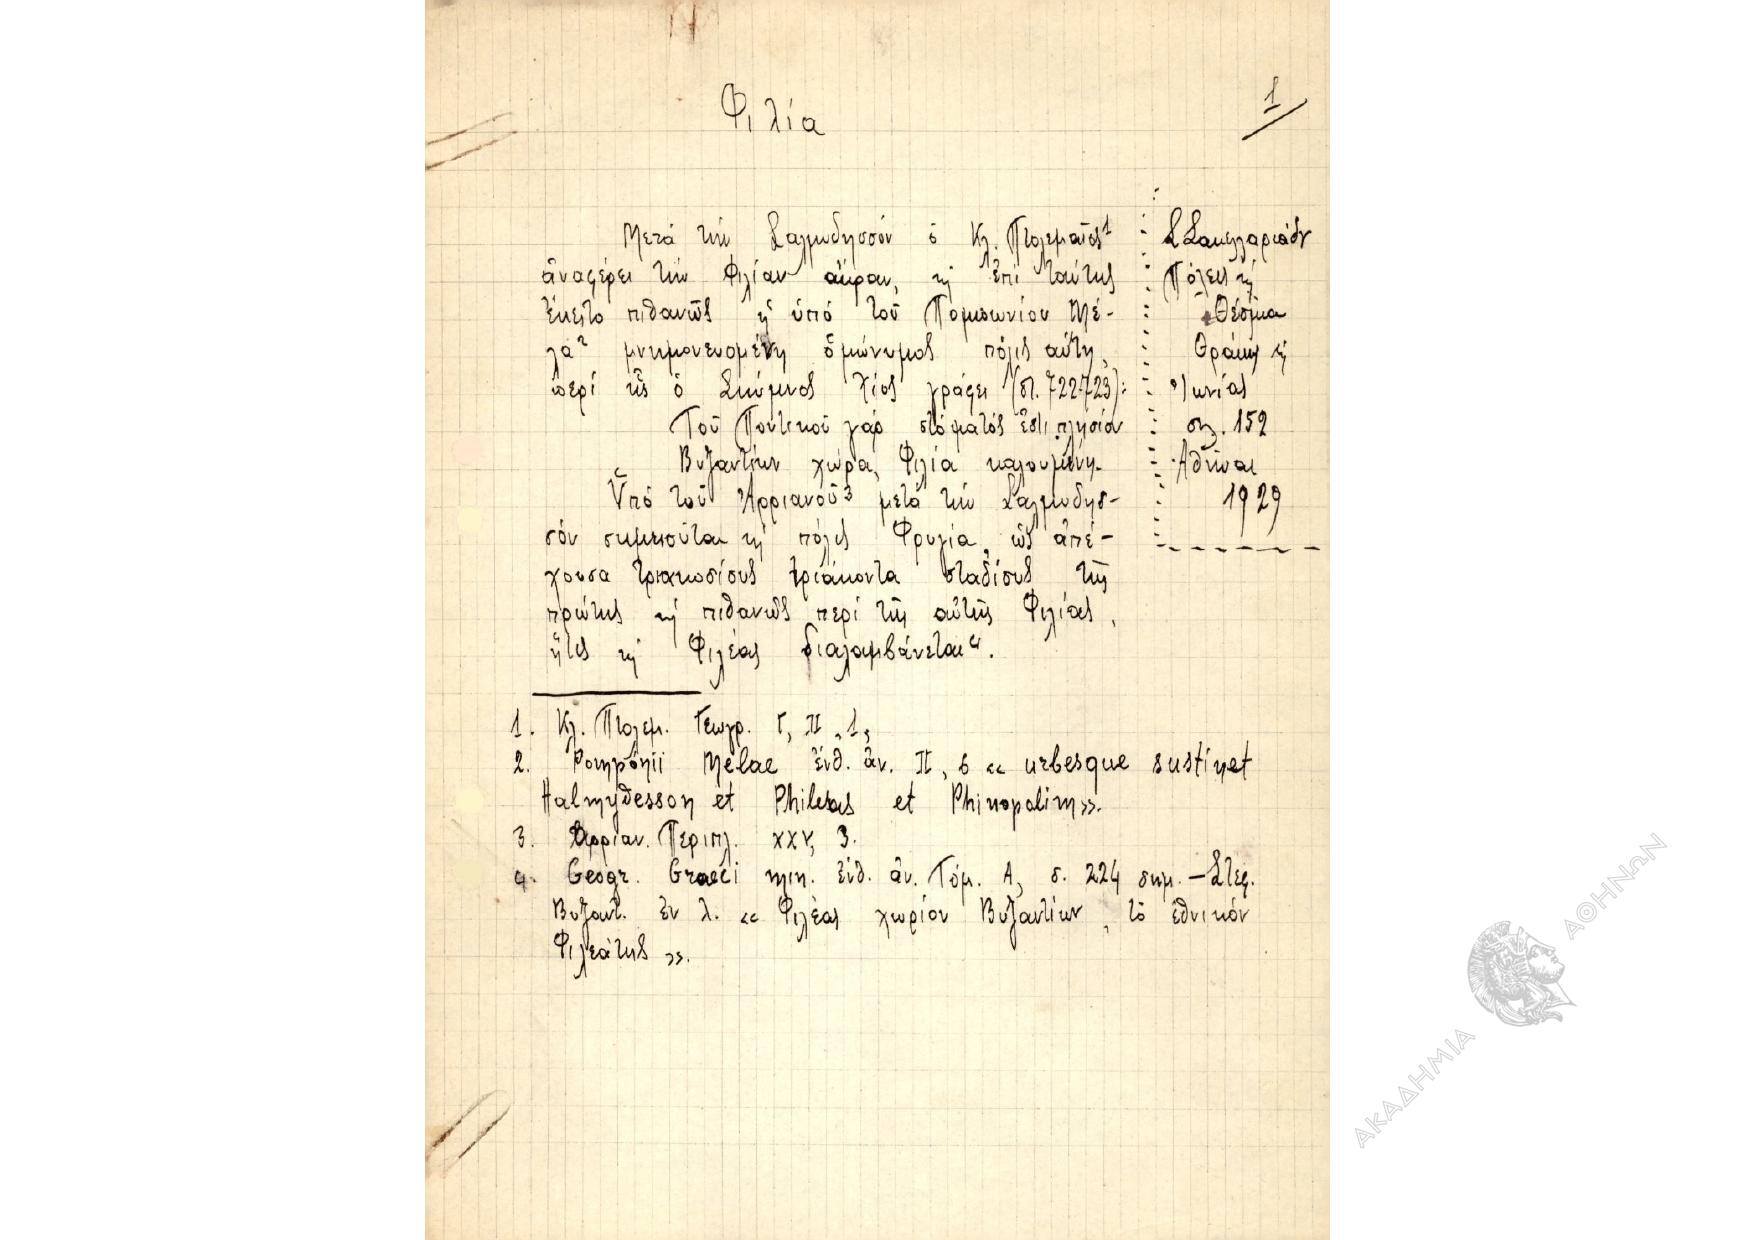 Φιλία
1
Μετά τήν Σαλμυδησσόν ὁ Κλ. Πτολεμαῖος¹
ἀναφέρει τήν Φιλίαν ἄκραν, κ ἐπί ταύτης
ἔκειτο πιθανῶς ἡ ὑπό τοῦ Πομπωνίου Μέ-
λα² μνημονευομένη ὁμώνυμος πόλις αὕτη,
περί ἧς ὁ Σκύμνος Χίος γράφει (στ. 722-723):
Τοῦ Ποντικοῦ γάρ στόματός ἐστι πλησίον
Βυζαντίων χώρα, Φιλία καλουμένη.
Ὑπό τοῦ Ἀρριανοῦ³ μετά τήν Σαλμυδησ-
σόν σημειοῦται ἡ πόλις Φρυγία, ὡς ἀπέ-
χουσα τριακοσίους τριάκοντα σταδίους τῆς
πρώτης κ πιθανῶς περί τῆς αὐτῆς Φιλίας,
ἥτις κ Φιλέας διαλαμβάνεται⁴.
Σ Σακελλαριάδου
Πόλεις κ
Θέσμια
Θράκης κ
Ἰωνίας
σελ. 152
Ἀθῆναι
1929
1. Κλ. Πτολεμ. Γεωγρ. Γ, II, 1,
2. Pomponii Melae ἐνθ. ἀν. II, 6 « urbesque sustinet
Halmydesson et Phileas et Phinopolim».
3. Ἀρριαν. Περιπλ. XXV, 3.
4. Geogr. Graeci min. ἐνθ. ἀν. Τόμ. Α, σ. 224 σημ. – Στεφ.
Βυζαντ. ἐν λ. « Φιλέας χωρίον Βυζαντίων, τὸ ἐθνικόν
Φιλεάτης ».
ΑΚΑΔΗΜΙΑ ΑΘΗΝΩΝ